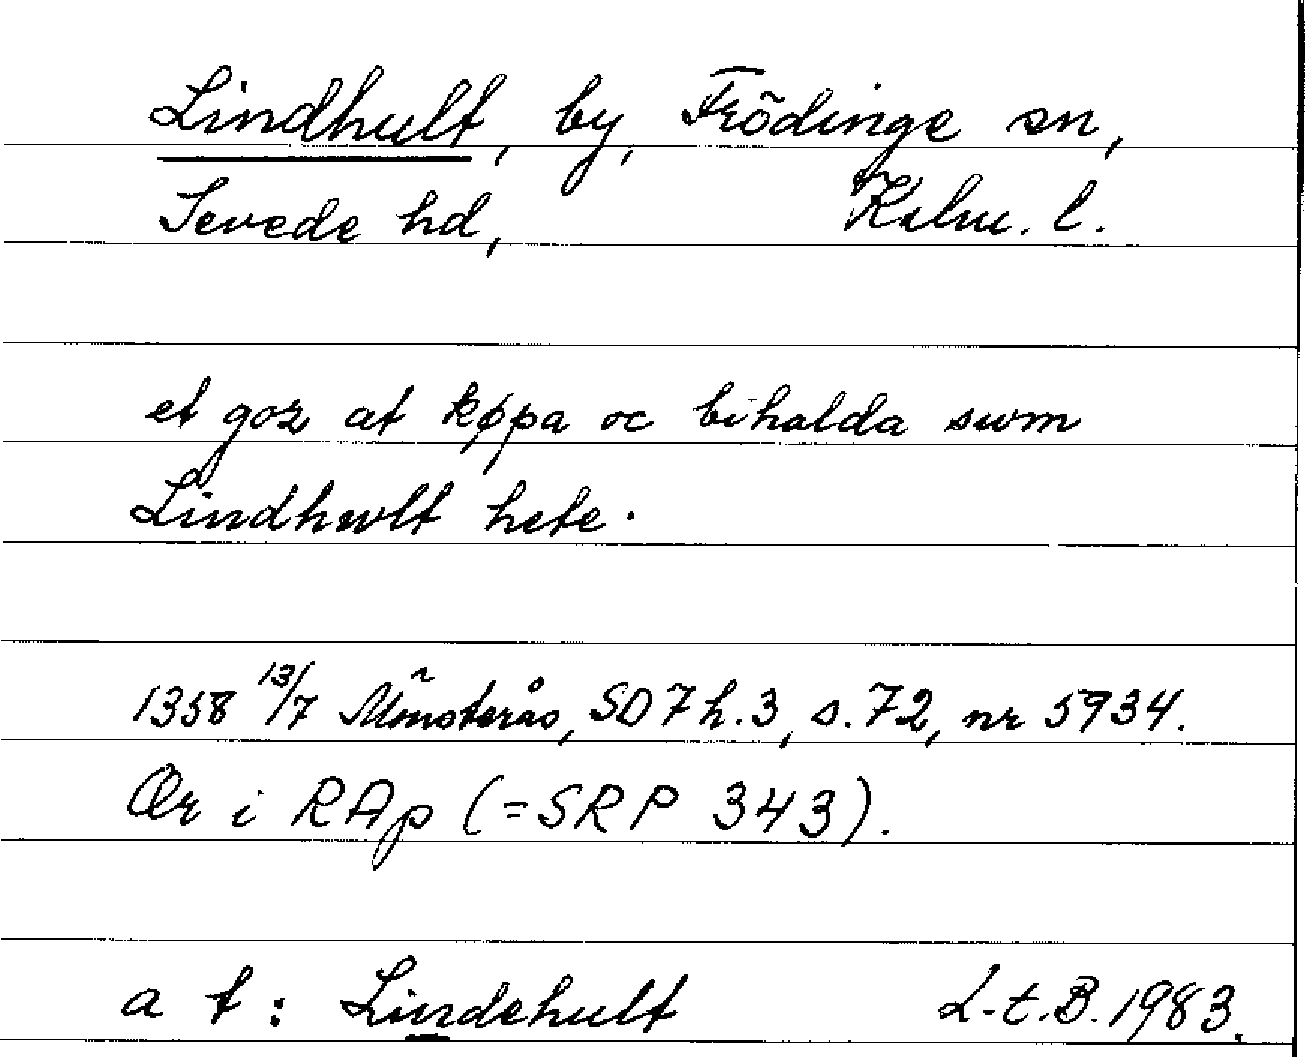 Lindhult, by, Frödinge sn,
Sevede hd, Kalm. l.
et goz at køpa oc bihalda swm
Lindhwlt hete.
1358 13/7 Mönsterås, SD 7 h. 3, s. 72, nr 5934.
Or i RAp (=SRP 343).
a t: Lindehult L-t. B. 1983.